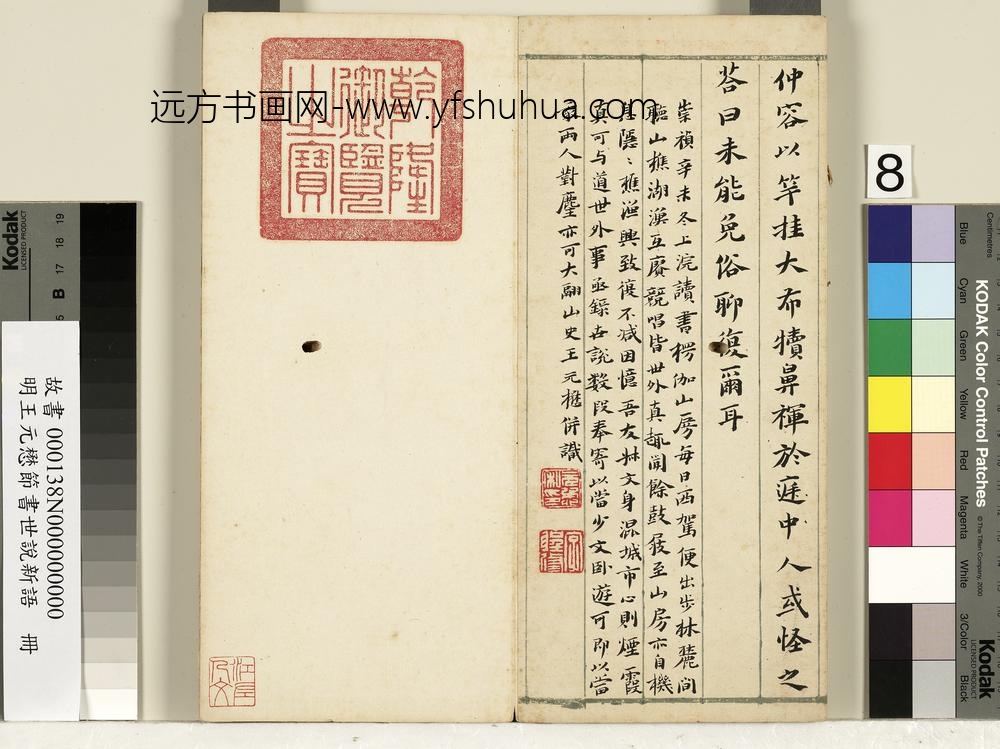 仲容以竿挂大布犢鼻褌於庭中人或怪之
荅曰未能免俗聊復爾耳
崇禎辛未冬上浣讀書楞伽山房每日西駕便出步林麓間
聽山樵湖漁互賡競唱皆世外真
餘鼓屐至山房亦自機
隱隱樵漁興致復不減因憶吾友
文身混城市心則煙霞
真可与道世外事亟錄世說數段奉寄以當少文卧遊可即以當
兩人對麈亦可大
山史王元懋併識
乾隆
御覽
之寶
远方书画网-www.yfshuhua.com
8
故書 000138N000000000
明王元懋節書世說新語 冊
Kodak
LICENSED PRODUCT
B 17 18 19
KODAK Color Control Patches
© The Tiffen Company, 2000
Centimetres
Blue
Cyan
Green
Yellow
Red
Magenta
White
3/Color
Black
Kodak
LICENSED PRODUCT